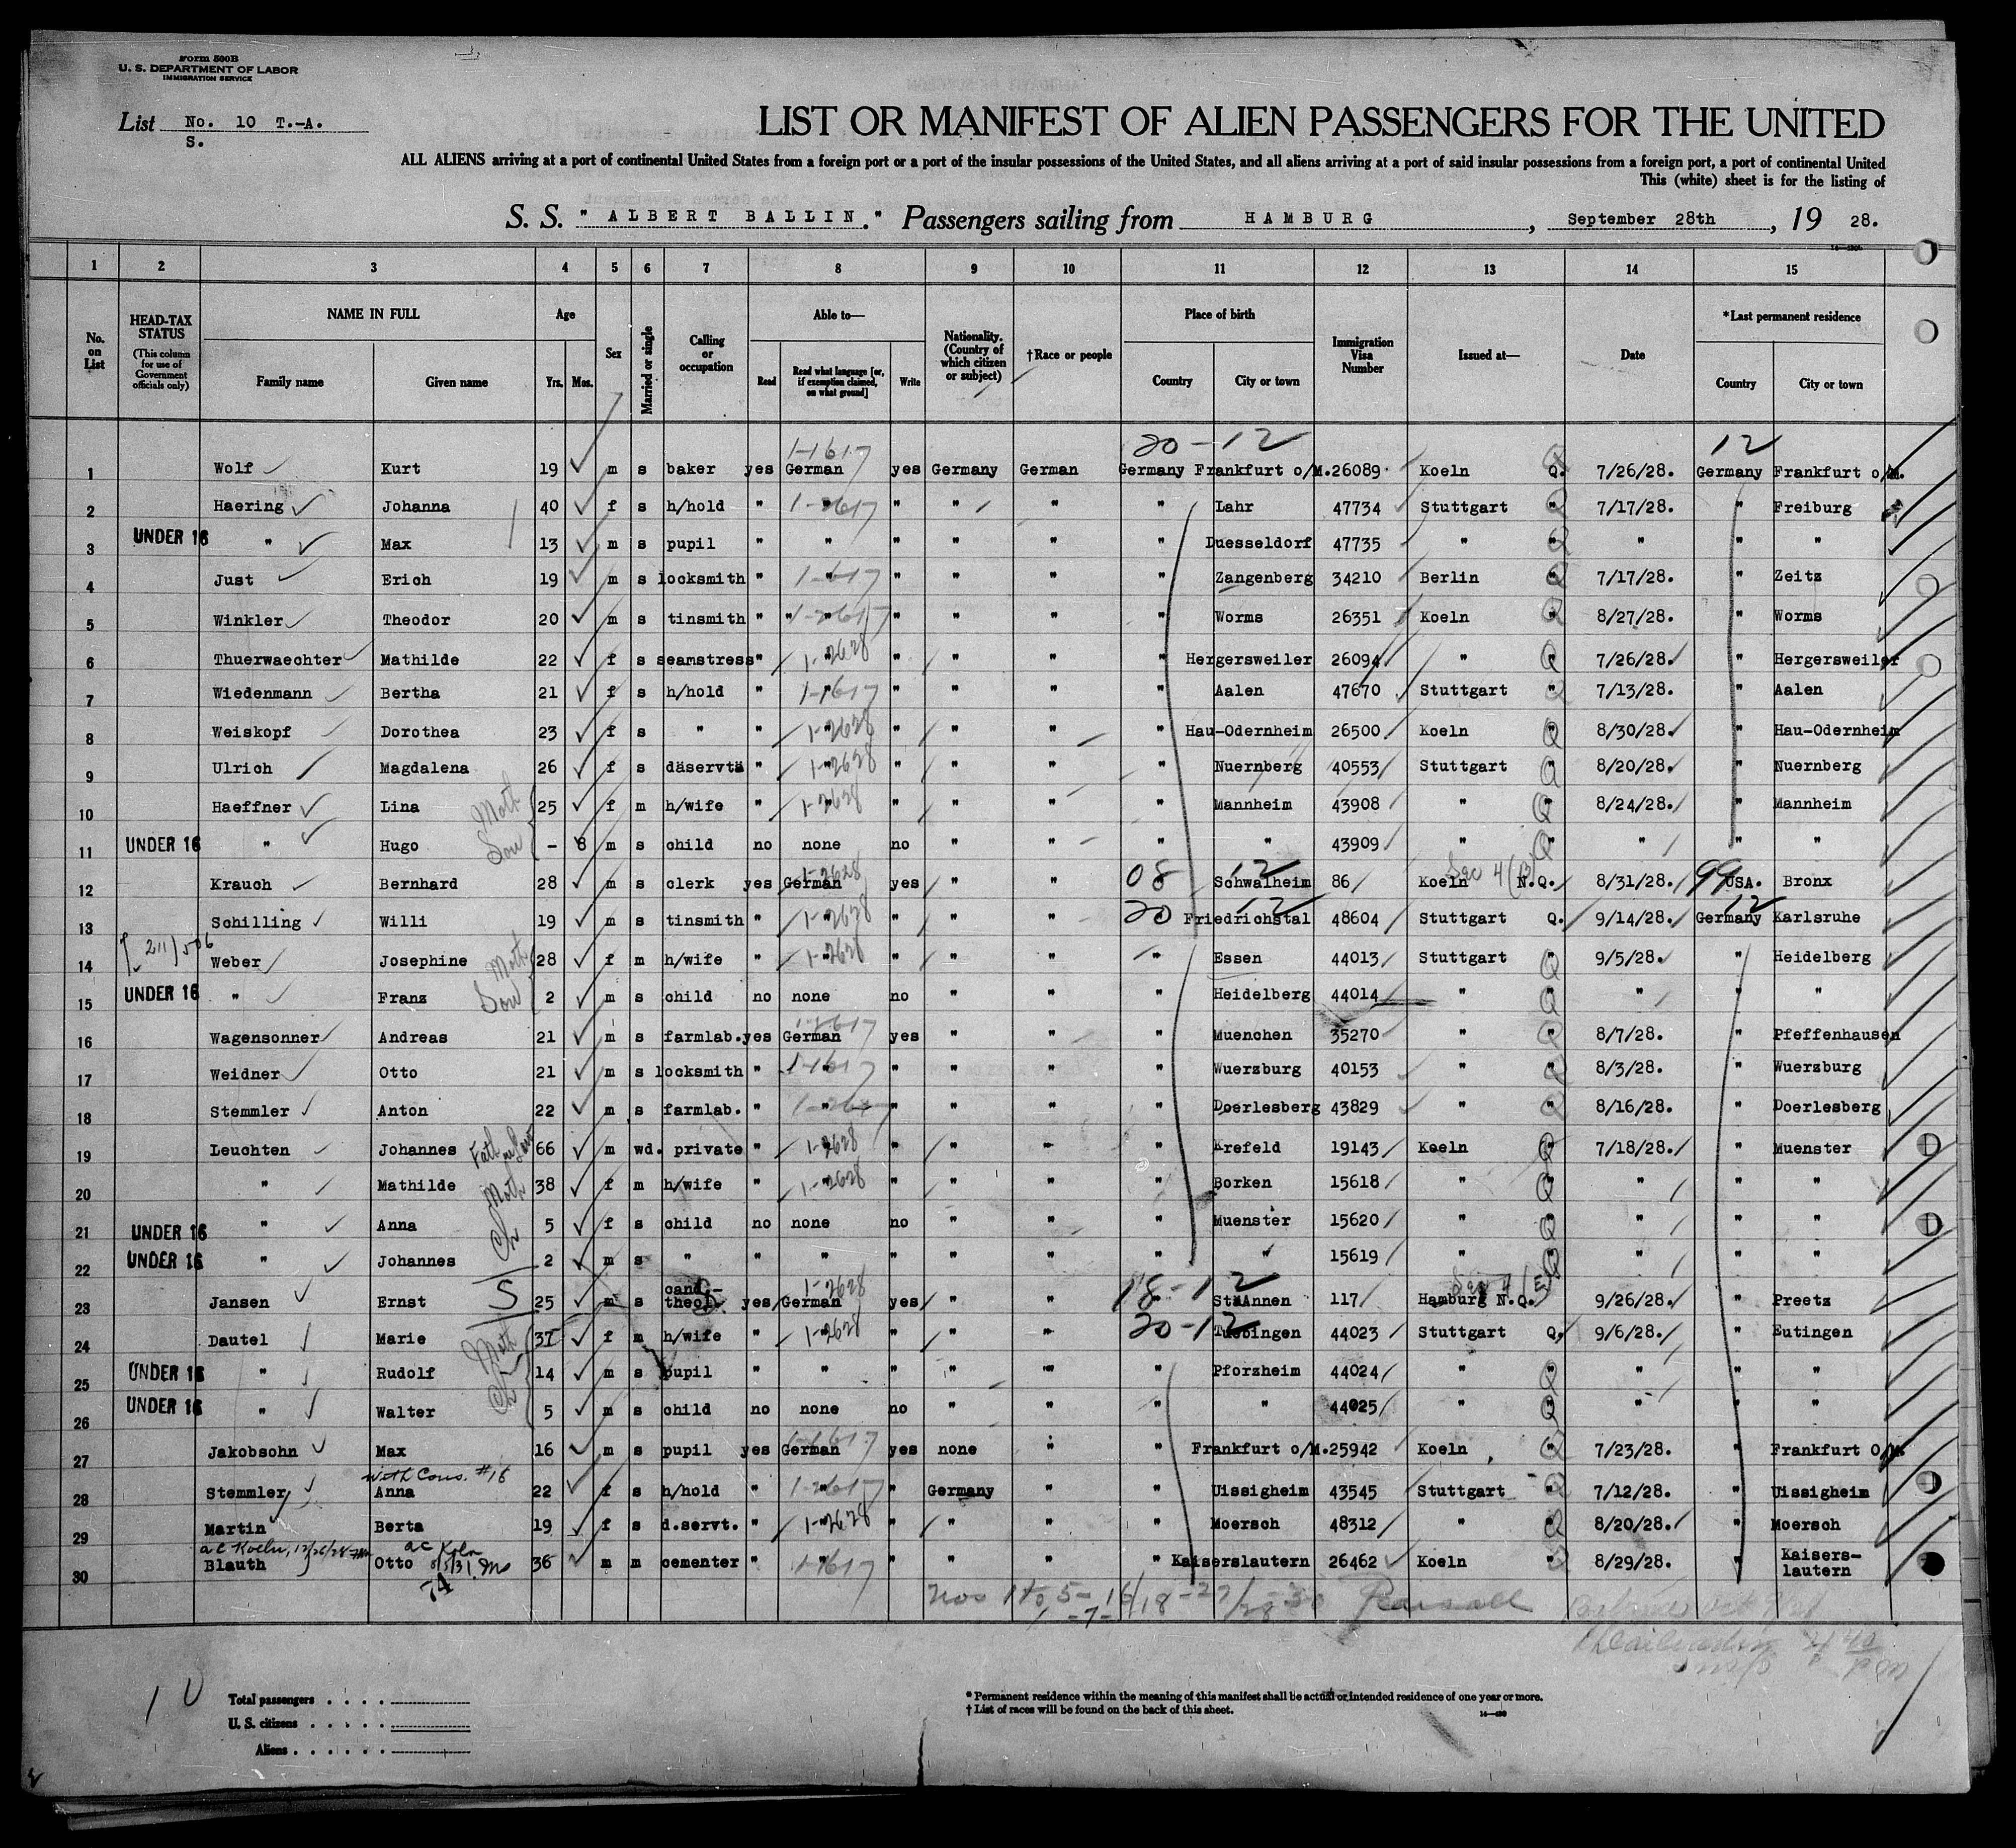 Form 500B
U. S. DEPARTMENT OF LABOR
IMMIGRATION SERVICE
List No. 10 T.-A.
S.
LIST OR MANIFEST OF ALIEN PASSENGERS FOR THE UNITED
ALL ALIENS arriving at a port of continental United States from a foreign port or a port of the insular possessions of the United States, and all aliens arriving at a port of said insular possessions from a foreign port, a port of continental United
This (white) sheet is for the listing of
S. S. " ALBERT BALLIN." Passengers sailing from HAMBURG, September 28th, 19 28.
1 2 3 4 5 6 7 8 9 10 11 12 13 14 15
No. on List
HEAD-TAX STATUS (This column for use of Government officials only)
NAME IN FULL Family name Given name
Age Yrs. Mos.
Sex
Married or single
Calling or occupation
Able to— Read Read what language [or, if exemption claimed, on what ground] Write
Nationality. (Country of which citizen or subject)
†Race or people
Place of birth Country City or town
Immigration Visa Number
Issued at—
Date
*Last permanent residence Country City or town
20-12 12
1 Wolf Kurt 19 m s baker yes German 1-1617 yes Germany German Germany Frankfurt o/M. 26089 Koeln Q. 7/26/28. Germany Frankfurt o/M.
2 Haering Johanna 40 f s h/hold " " 1-2617 " " " " Lahr 47734 Stuttgart " 7/17/28. " Freiburg
3 UNDER 16 " Max 13 m s pupil " " " " " " Duesseldorf 47735 " " " " "
4 Just Erich 19 m s locksmith " " 1-1617 " " " " Zangenberg 34210 Berlin " 7/17/28. " Zeitz
5 Winkler Theodor 20 m s tinsmith " " " 1-2617 " " " " Worms 26351 Koeln " 8/27/28. " Worms
6 Thuerwaechter Mathilde 22 f s seamstress " " 1-2628 " " " " Hergersweiler 26094 " Q 7/26/28. " Hergersweiler
7 Wiedenmann Bertha 21 f s h/hold " " 1-1617 " " " " Aalen 47670 Stuttgart " 7/13/28. " Aalen
8 Weiskopf Dorothea 23 f s " " " 1-2628 " " " " Hau-Odernheim 26500 Koeln " 8/30/28. " Hau-Odernheim
9 Ulrich Magdalena 26 f s däservtä " " 1-2628 " " " " Nuernberg 40553 Stuttgart " 8/20/28. " Nuernberg
10 Haeffner Lina Moth 25 f m h/wife " " 1-2628 " " " " Mannheim 43908 " " 8/24/28. " Mannheim
11 UNDER 16 " Hugo Son - 8 m s child no none no " " " " 43909 " " " " "
12 Krauch Bernhard 28 m s clerk yes German 1-2628 yes " " 08 12 Schwalheim 86 Koeln Sec 4(B) N.Q. 8/31/28. 99 USA. Bronx
13 Schilling Willi 19 m s tinsmith " " 1-2628 " " " 20 12 Friedrichstal 48604 Stuttgart Q. 9/14/28. 12 Germany Karlsruhe
14 211/506 Weber Josephine Moth 28 f m h/wife " " 1-2628 " " " " Essen 44013 Stuttgart " 9/5/28. " Heidelberg
15 UNDER 16 " Franz Son 2 m s child no none no " " " Heidelberg 44014 " " " " "
16 Wagensonner Andreas 21 m s farmlab. yes German 1-1617 yes " " " Muenchen 35270 " " 8/7/28. " Pfeffenhausen
17 Weidner Otto 21 m s locksmith " " 1-1617 " " " " Wuerzburg 40153 " " 8/3/28. " Wuerzburg
18 Stemmler Anton 22 m s farmlab. " " " " " " Doerlesberg 43829 " " 8/16/28. " Doerlesberg
19 Leuchten Johannes Fath in law 66 m wd. private " " 1-2628 " " " " Krefeld 19143 Koeln " 7/18/28. " Muenster
20 " Mathilde Moth 38 f m h/wife " " 1-2628 " " " " Borken 15618 " " " " "
21 UNDER 16 " Anna Ch 5 f s child no none no " " " Muenster 15620 " " " " "
22 UNDER 16 " Johannes 2 m s " " " " " " " " 15619 " " " " "
23 Jansen Ernst S 25 m s cand.- theol. yes German 1-2628 yes " " 18-12 St. Annen 117 Hamburg Sec 4(E) N.Q. 9/26/28. " Preetz
24 Dautel Marie Moth 37 f m h/wife " " 1-2628 " " " 20-12 Tuebingen 44023 Stuttgart Q. 9/6/28. " Eutingen
25 UNDER 16 " Rudolf Ch 14 m s pupil " " " " " " Pforzheim 44024 " " " " "
26 UNDER 16 " Walter 5 m s child no none no " " " " 44025 " " " " "
27 Jakobsohn Max 16 m s pupil yes German 1-1617 yes none " " Frankfurt o/M. 25942 Koeln " 7/23/28. " Frankfurt O/M.
with Cons. #16
28 Stemmler Anna 22 f s h/hold " " 1-2617 " Germany " " Uissigheim 43545 Stuttgart " 7/12/28. " Uissigheim
29 Martin Berta 19 f s d.servt. " " 1-2628 " " " " Moersch 48312 " " 8/20/28. " Moersch
a c Koeln, 12/26/28 a c Koln
30 Blauth Otto 36 m m cementer " " 1-1617 " " " " Kaiserslautern 26462 Koeln " 8/29/28. " Kaisers-lautern
74
Nos 1 to 5-
10
Total passengers
U. S. citizens
Aliens
* Permanent residence within the meaning of this manifest shall be actual or intended residence of one year or more.
† List of races will be found on the back of this sheet.